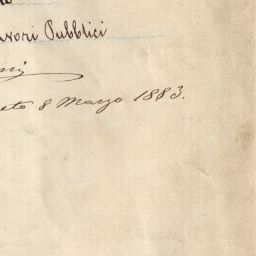 avori Pubblici
eto 8 Marzo 1883.